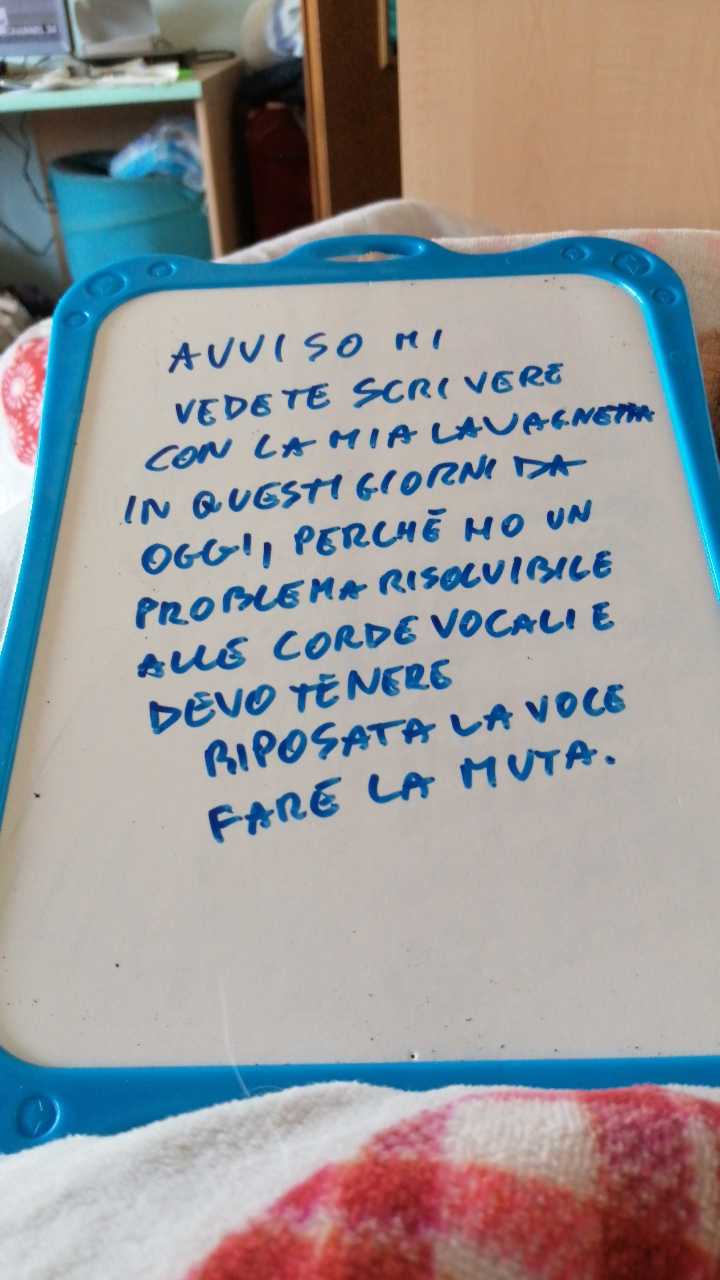 AVVISO MI
VEDETE SCRIVERE
CON LA MIA LAVAGNETTA
IN QUESTI GIORNI DA
OGGI, PERCHÉ HO UN
PROBLEMA RISOLVIBILE
ALLE CORDE VOCALI E
DEVO TENERE
RIPOSATA LA VOCE
FARE LA MUTA.